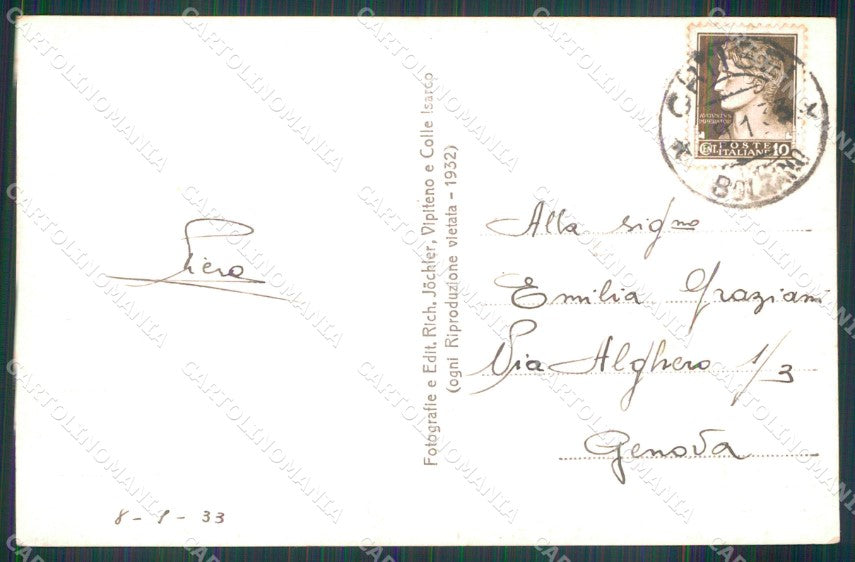 Piero
8 - 9 - 33
Fotografie e Edit. Rich. Jöchler, Vipiteno e Colle Isarco
(ogni Riproduzione vietata - 1932)
AUGVSTVS
IMPERATOR
CENT POSTE 10
ITALIANE
BOLZANO
Alla sigma
Emilia Graziani
Via Alghero 1/3
Genova
CARTOLINOMANIA